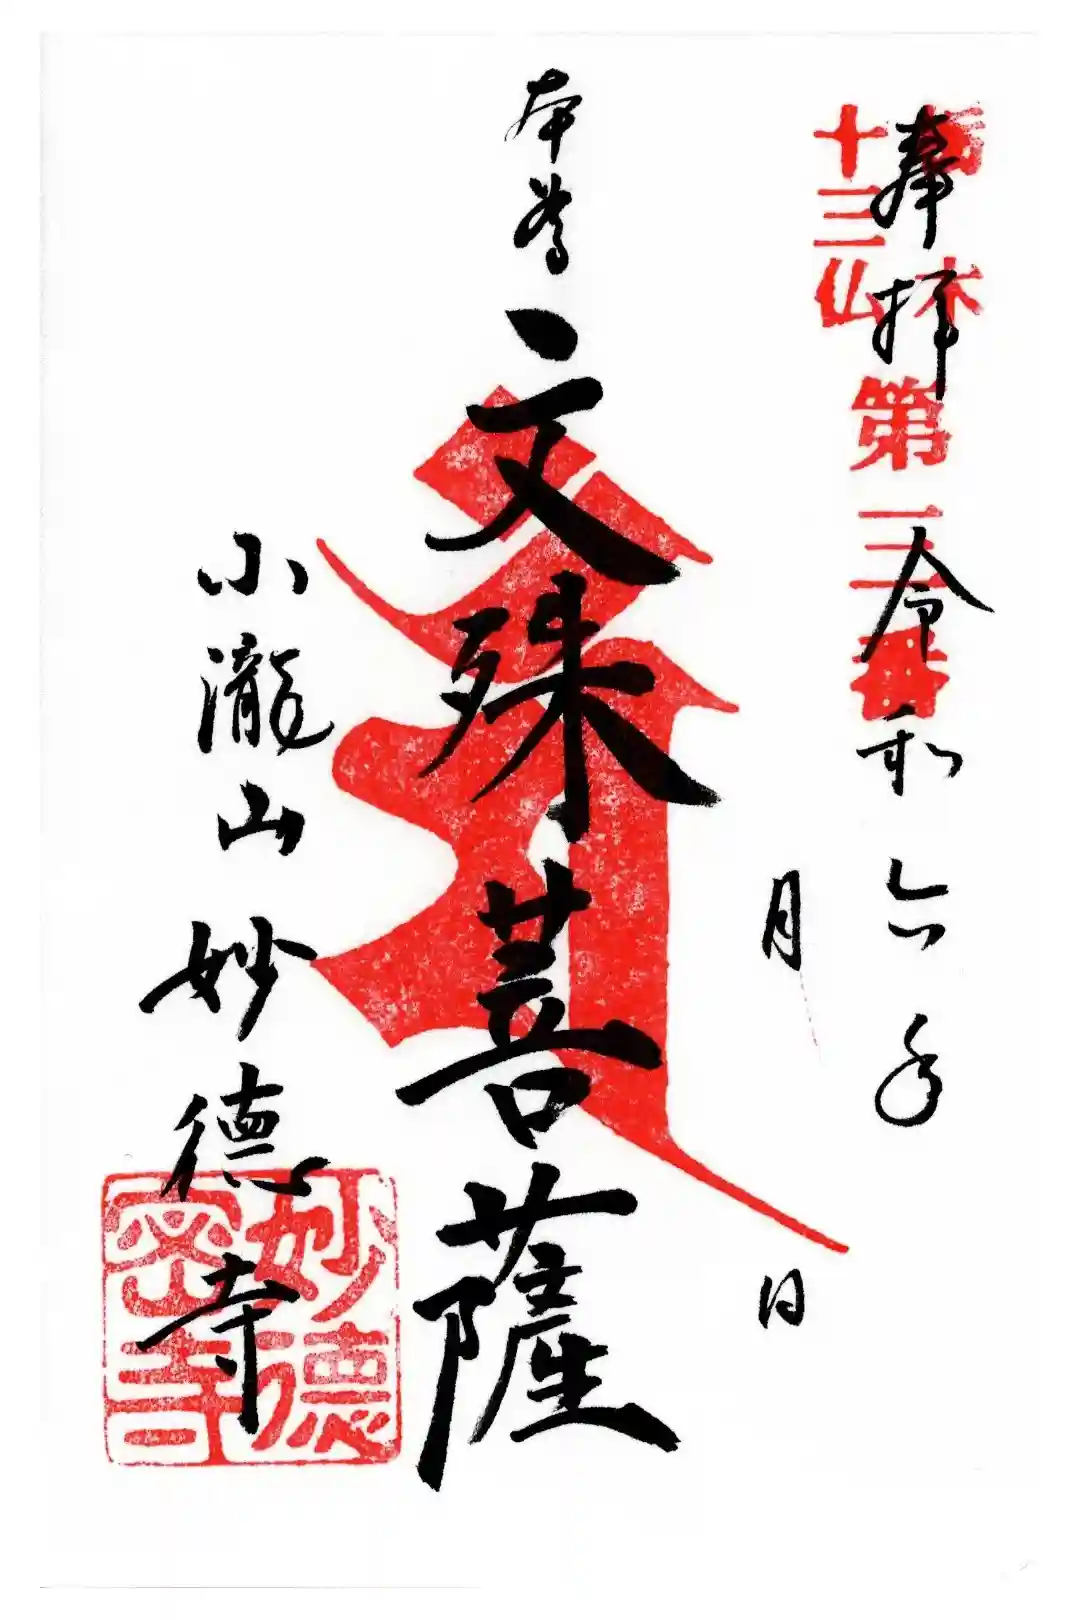 奉拝
栃木
十三仏
第三番
令和六年
月 日
本尊
文殊菩薩
小瀧山妙徳寺
妙徳
密寺